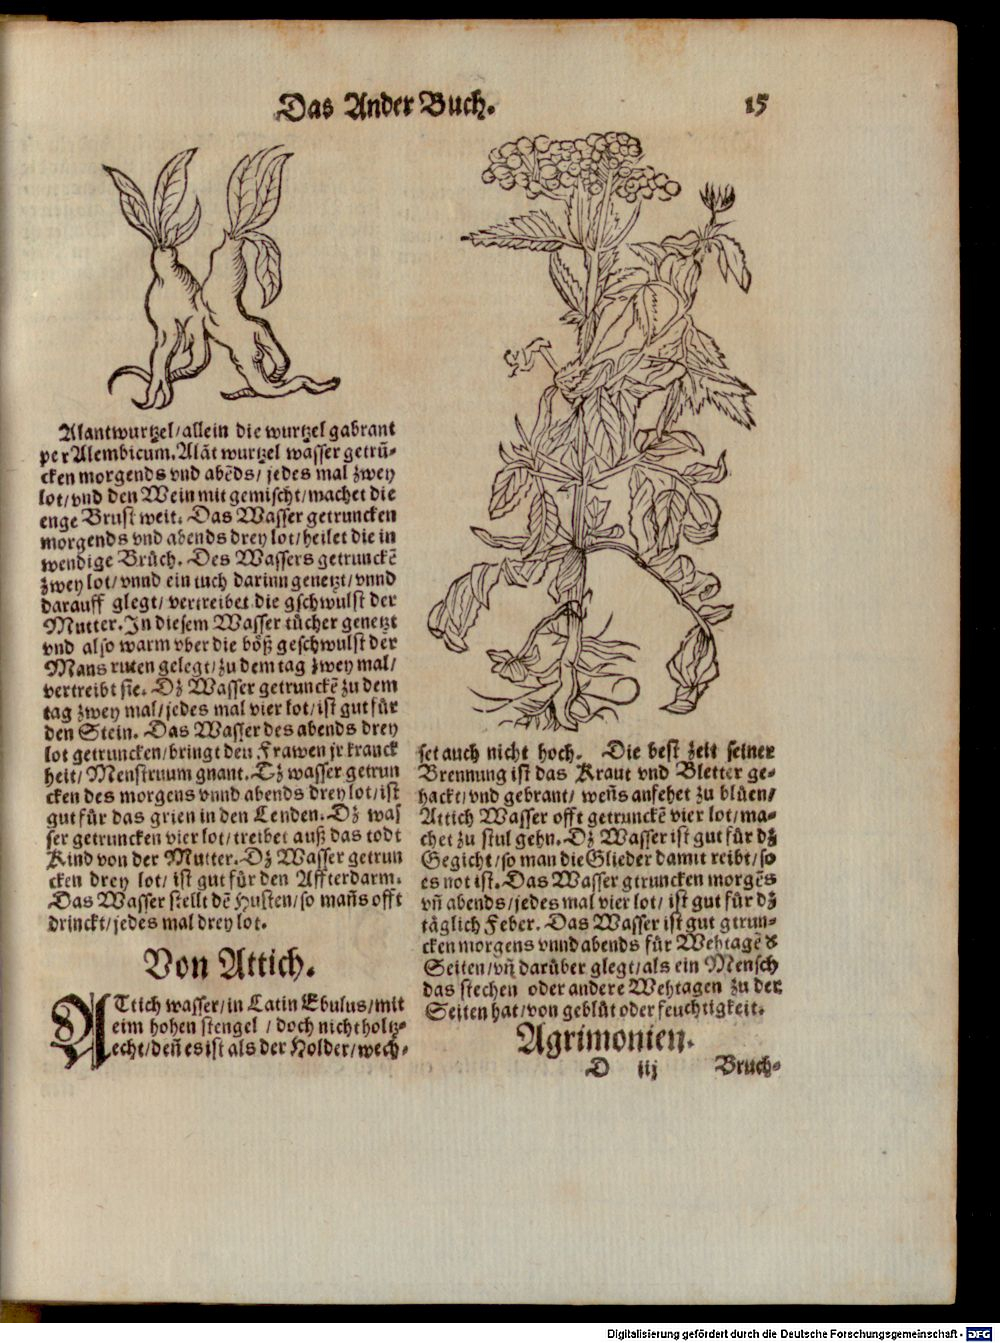 Das Ander Buch.
15
Alantwurtzel/allein die wurtzel gabrant
per Alembicum. Alāt wurtzel wasser getrū-
cken morgends vnd abēds/ jedes mal zwey
lot/ vnd den Wein mit gemischt/ machet die
enge Brust weit. Das Wasser getruncken
morgends vnd abends drey lot/ heilet die in
wendige Brüch. Des Wassers getrunckē
zwey lot/ vnnd ein tuch darinn genetzt/ vnnd
darauff glegt/ vertreibet die gschwulst der
Mutter. In diesem Wasser tücher genetzt
vnd also warm vber die böß geschwulst der
Mans ruten gelegt/ zu dem tag zwey mal/
vertreibt sie. Dz Wasser getrunckē zu dem
tag zwey mal/ jedes mal vier lot/ ist gut für
den Stein. Das Wasser des abends drey
lot getruncken/ bringt den Frawen jr kranck
heit/ Menstruum gnant. Dz wasser getrun
cken des morgens vnnd abends drey lot/ ist
gut für das grien in den Lenden. Dz was
ser getruncken vier lot/ treibet auß das todt
Kind von der Mutter. Dz Wasser getrun
cken drey lot/ ist gut für den Affterdarm.
Das Wasser stellt dē Husten/ so mañs offt
drinckt/ jedes mal drey lot.
Von Attich.
ATtich wasser/ in Latin Ebulus/ mit
eim hohen stengel / doch nicht holtz-
echt/ deñ es ist als der Holder/ wech-
set auch nicht hoch. Die best zeit seiner
Brennung ist das Kraut vnd Bletter ge-
hackt/ vnd gebrant/ weñs anfehet zu blüen/
Attich Wasser offt getrunckē vier lot/ ma-
chet zu stul gehn. Dz Wasser ist gut für dz
Gegicht/ so man die Glieder damit reibt/ so
es not ist. Das Wasser gtruncken morgēs
vñ abends/ jedes mal vier lot/ ist gut für dz
täglich Feber. Das Wasser ist gut gtrun-
cken morgens vnnd abends für Wehtagē d'
Seiten/ vñ darüber glegt/ als ein Mensch
das stechen oder andere Wehtagen zu der
Seiten hat/ von geblüt oder feuchtigkeit.
Agrimonien.
D iij Bruch-
Digitalisierung gefördert durch die Deutsche Forschungsgemeinschaft - DFG